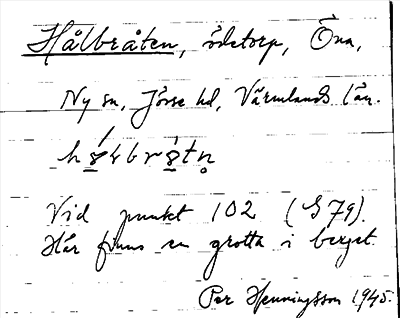 Hålbråten, ödetorp, Öna,
Ny sn, Jösse hd, Värmlands län.
Vid punkt 102 (S79).
Här finns en grotta i berget.
Per Henningsson 1945.